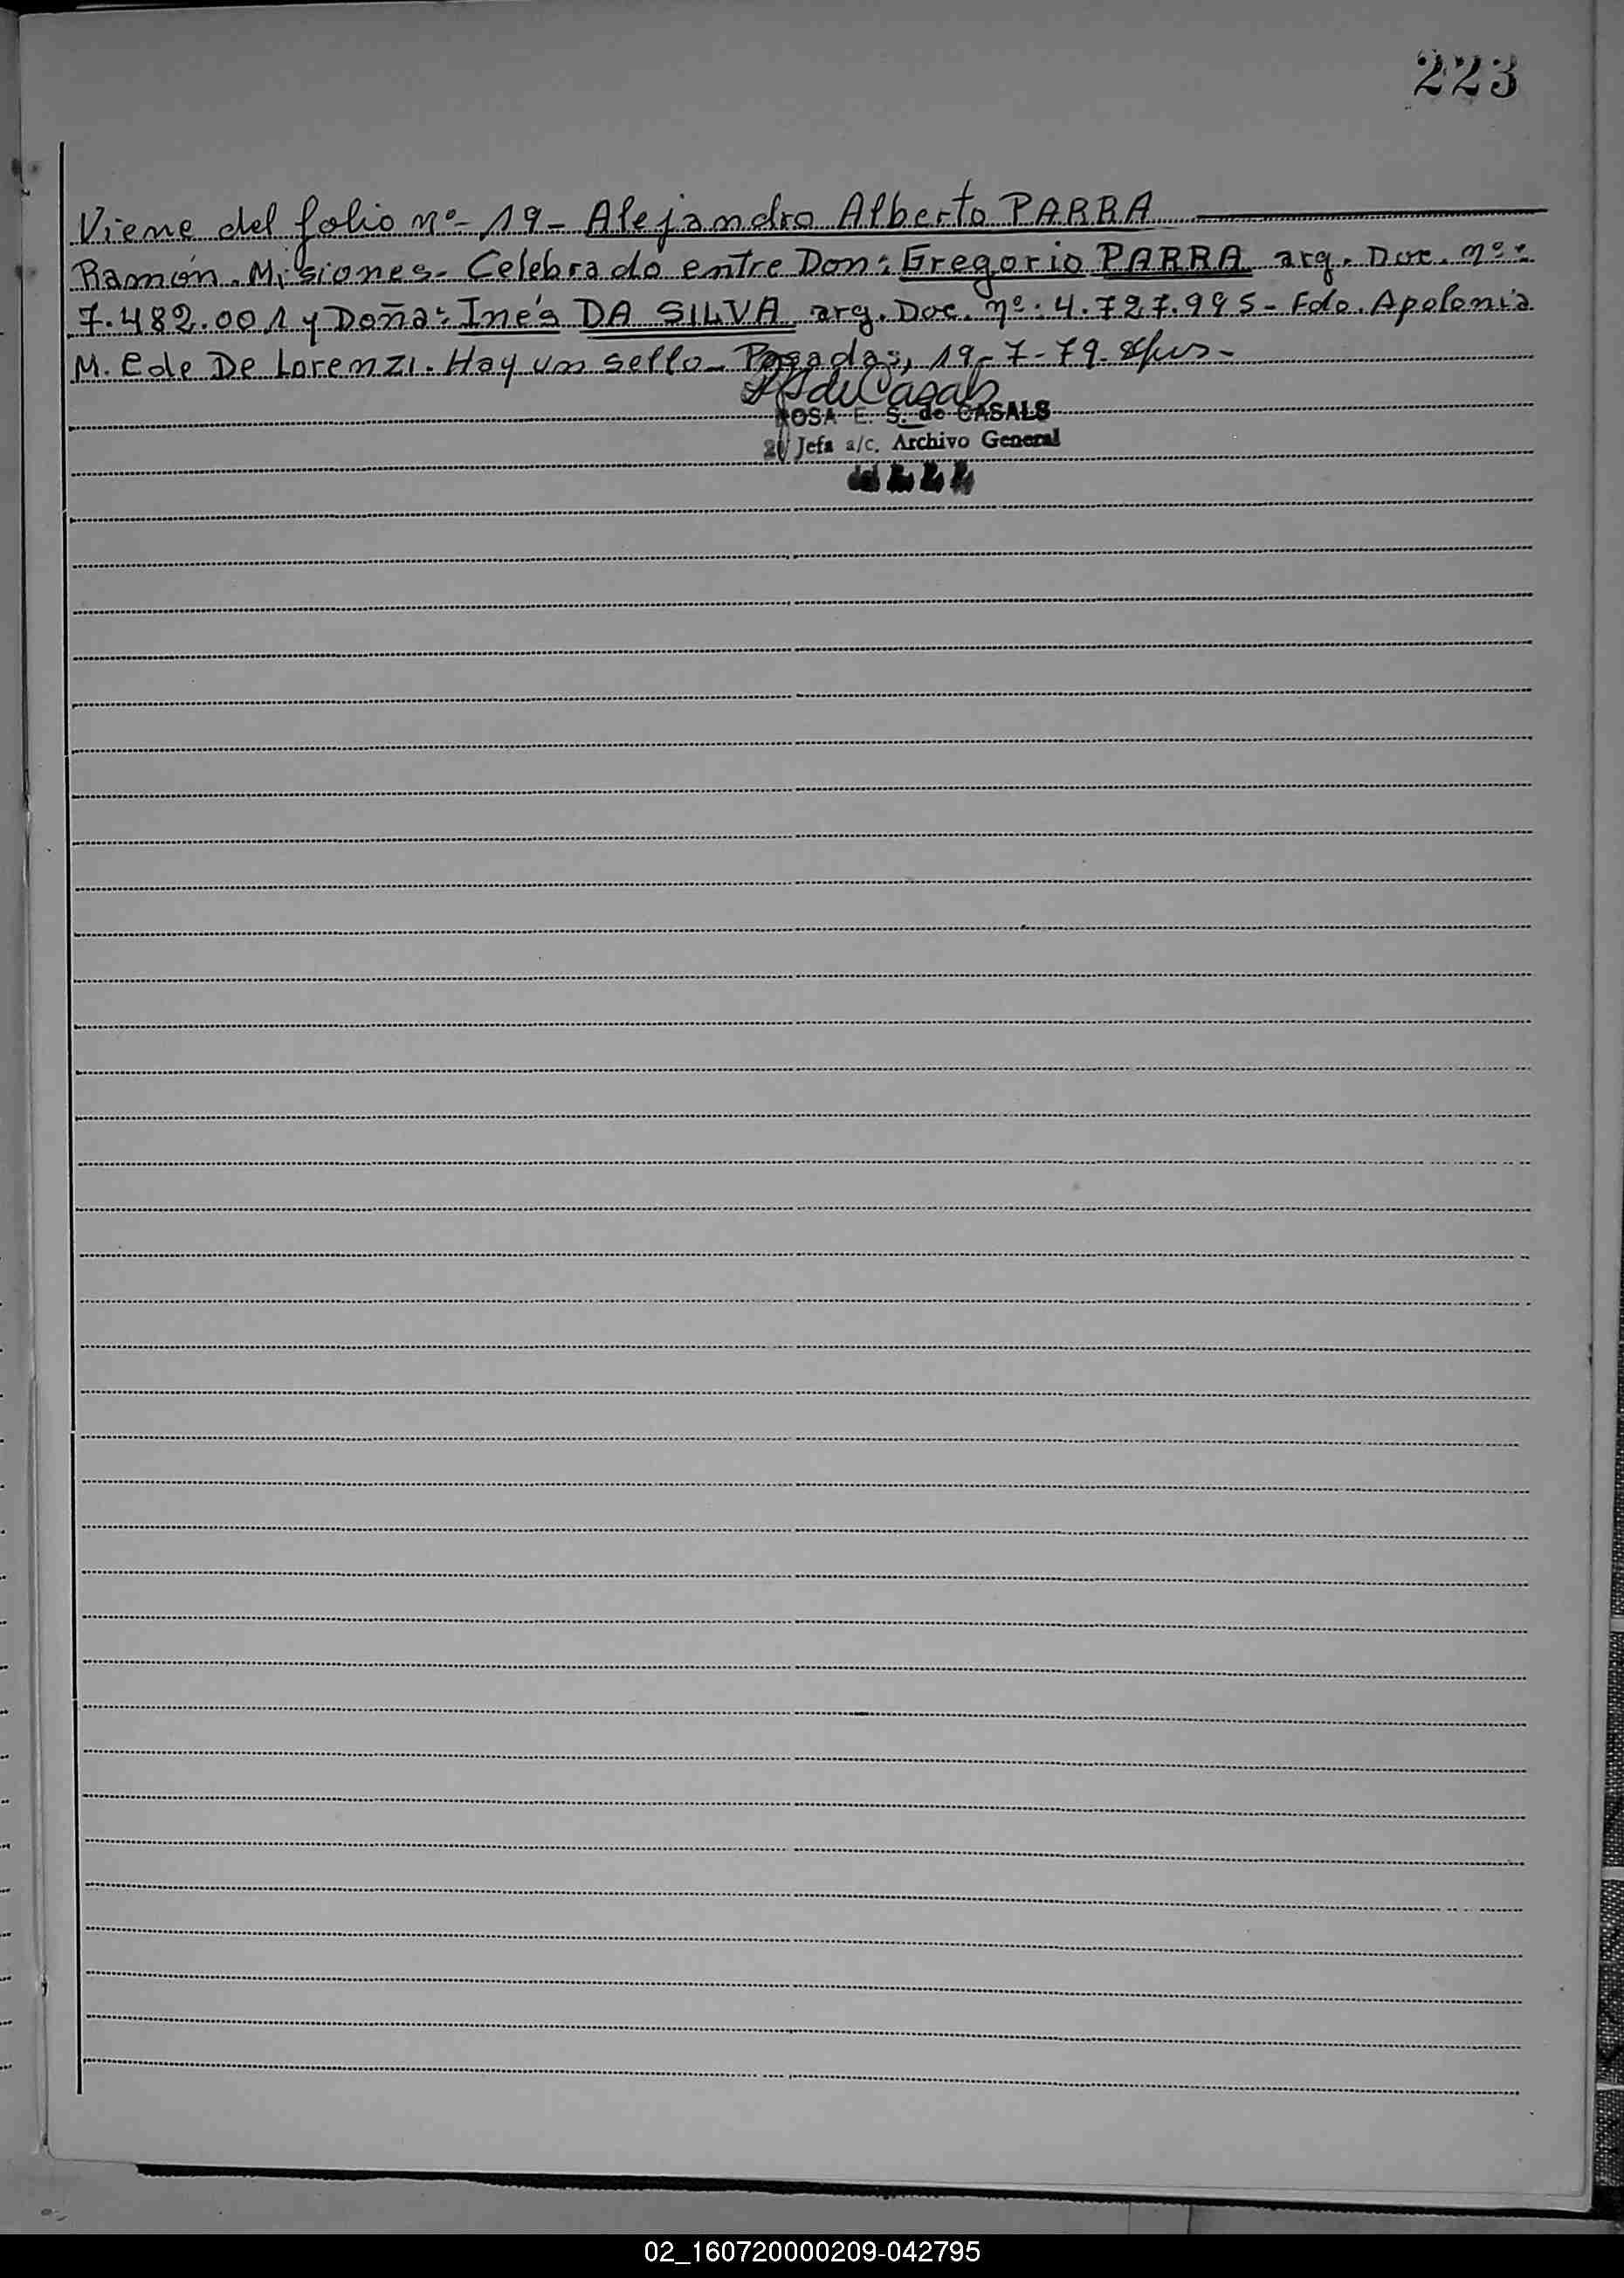 223
Viene del folio nº- 19- Alejandro Alberto PARRA
Ramón. Misiones- Celebrado entre Don: Gregorio PARRA arg. Doc. nº:
7.482.001 y Doña: Inés DA SILVA arg. Doc. nº: 4.727.995- Fdo. Apolonia
M. E de De Lorenzi. Hay un sello- Posadas, 19-7-79-
ROSA E. S. de CASALS
Jefa a/c. Archivo General
02_160720000209-042795